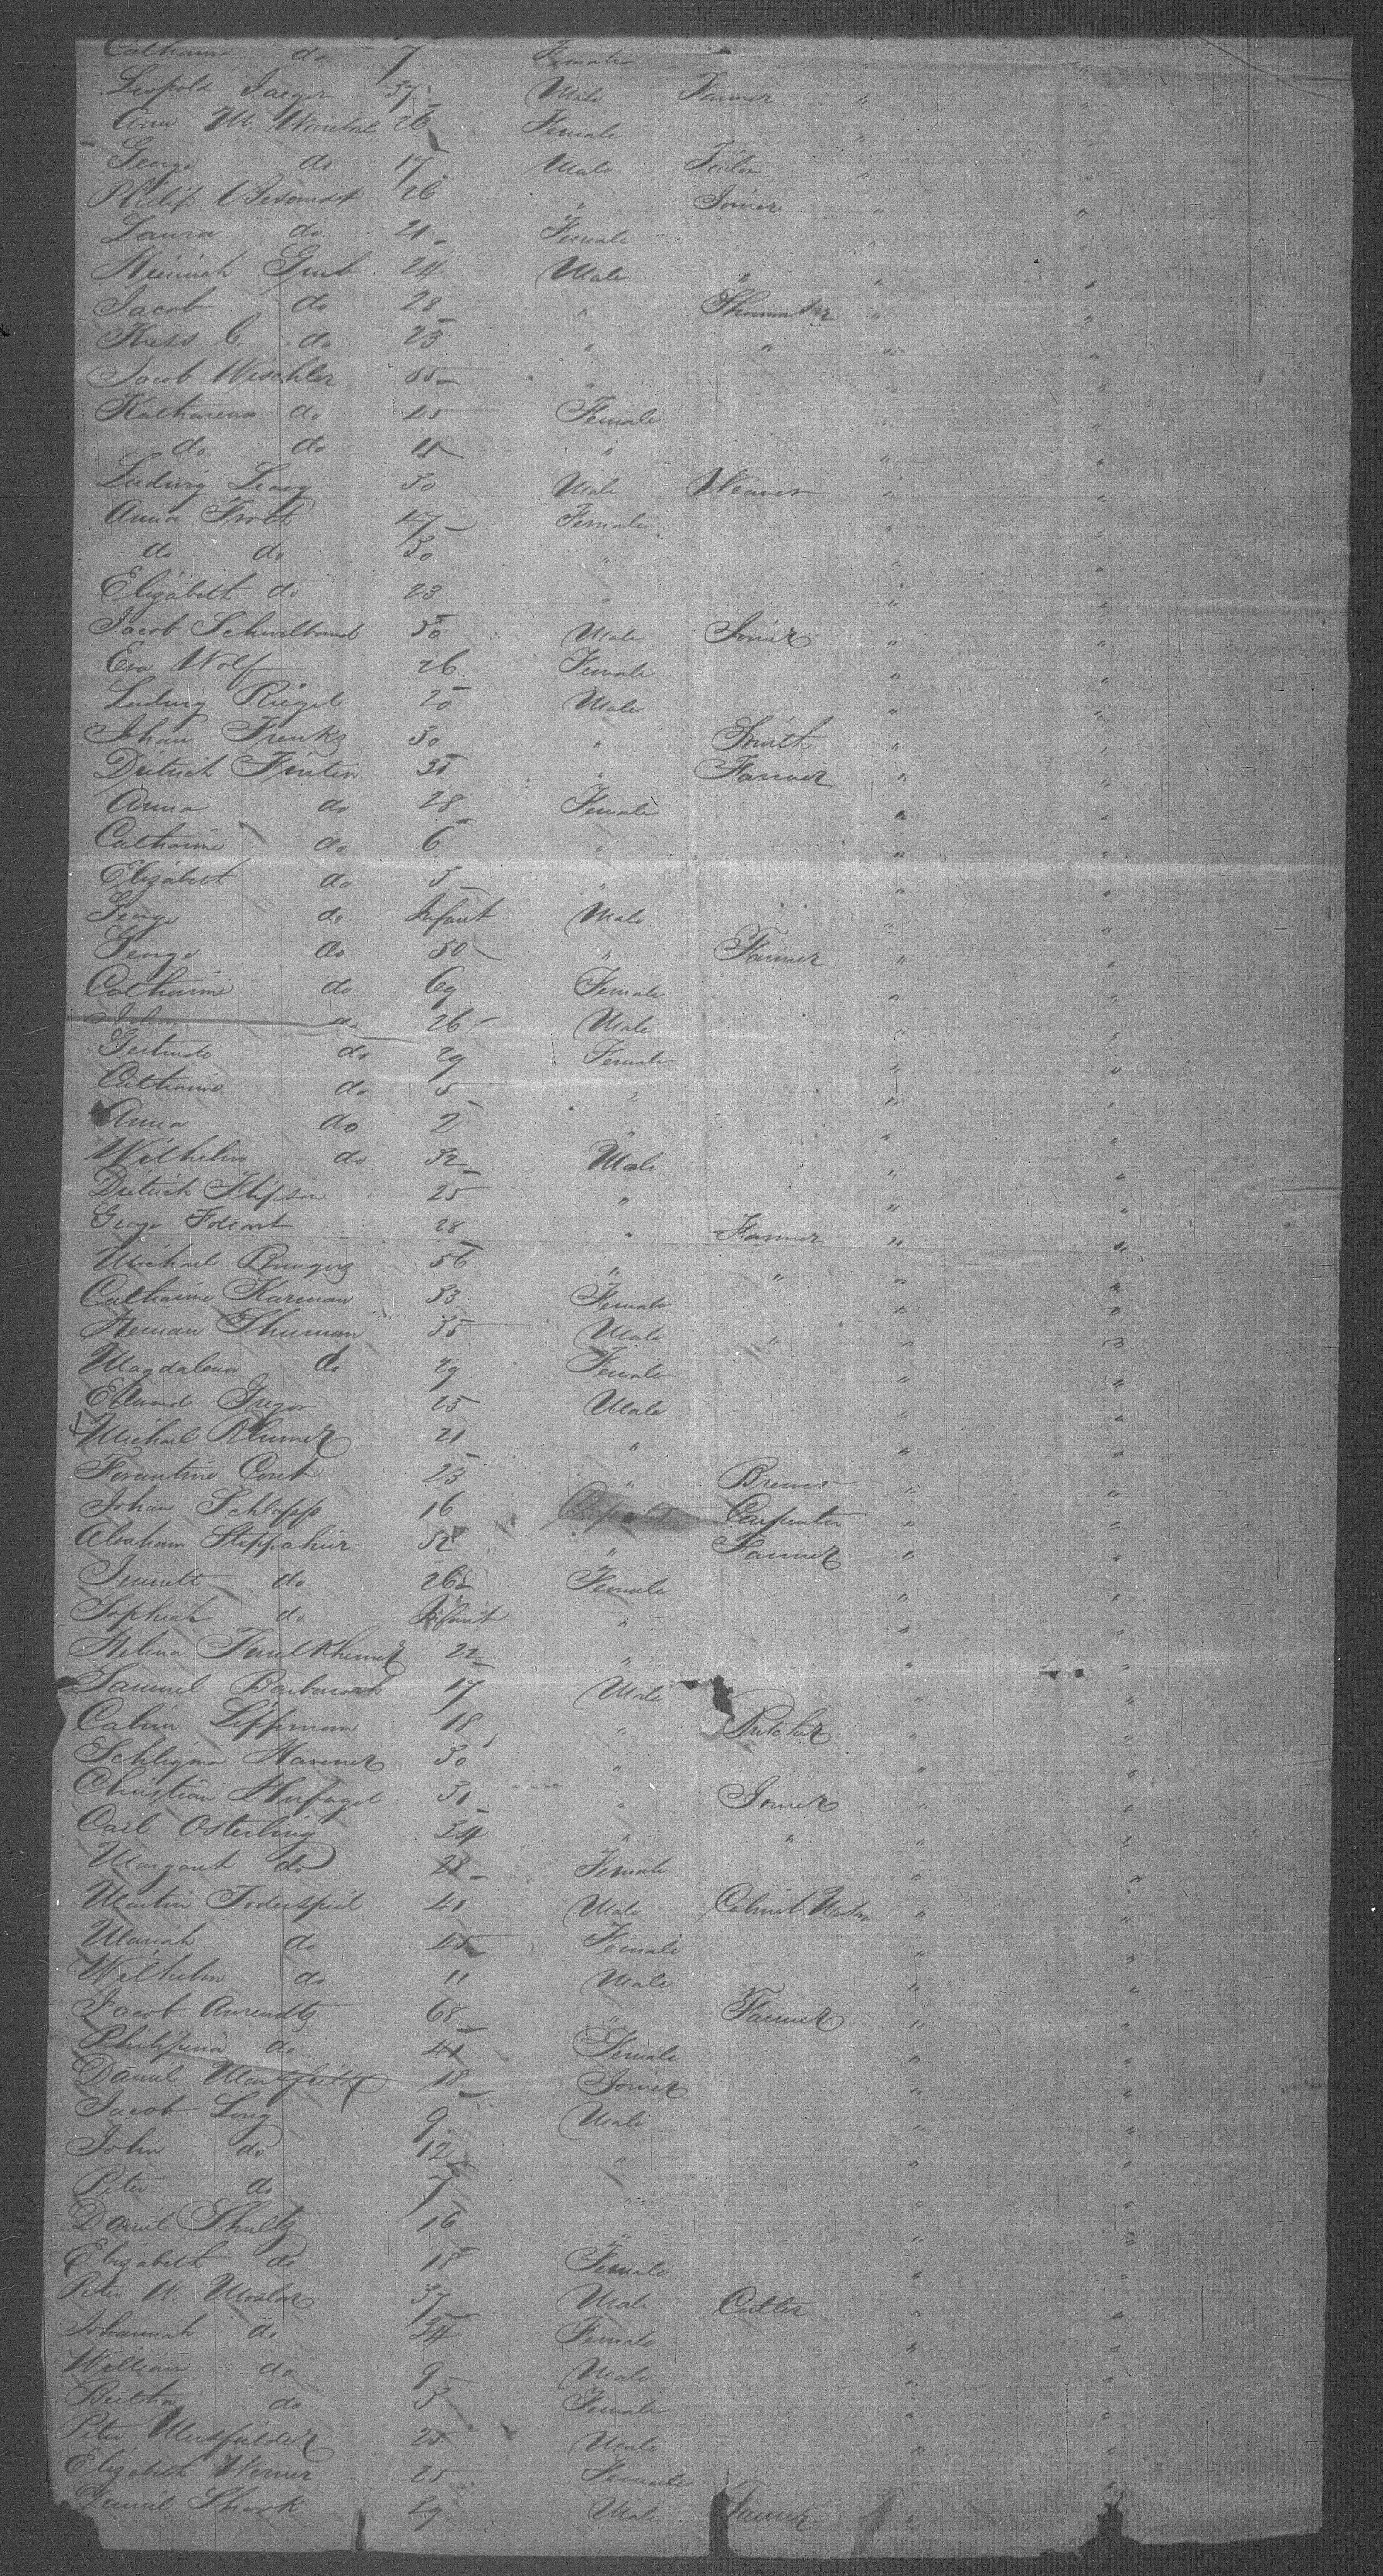 Catharine do 7 Female " "
Leopold Jaeger 37 Male Farmer " "
Anna M. 26 Female "
George do 17 Male Tailor " "
Philip 26 " Joiner " "
Laura do 21 Female " "
Heinrich Grub 24 Male " " "
Jacob do 28 " Shoemaker " "
Kress C. do 23 " " " "
Jacob Wischler 55 " " "
Katharena do 45 Female " "
do do 11 " " "
Ludwig Leary 30 Male Weaver " "
Anna Froth 47 Female " "
do do 30 " " "
Elizabeth do 23 " " "
Jacob Schwalbound 50 Male Joiner " "
Eva Wolf 26 Female " "
Ludwig Riegel 20 Male " "
Johan Frenks 30 " Smith " "
Dietrich Finten 35 " Farmer " "
Anna do 28 Female " "
Catharine do 6 " " "
Elizabeth do 5 " " "
George do Infant Male " "
George do 50 " Farmer " "
Catharine do 69 Female " "
John do 26 Male " "
Gertrude do 29 Female " "
Catharine do 5 " " "
Anna do 2 " " "
Wilhelm do 32 Male " "
Dietrich Flipson 25 " " "
George 28 " Farmer " "
Michael 56 " " " "
Catharine Karman 33 Female " "
Heman Thurman 35 Male " " "
Magdalena do 29 Female " "
Edward Gregor 25 Male " "
Michael Rhimer 21 " " "
Forantine Cont 23 " Brewer " "
Johan Schlapp 16 Carpenter " "
Abraham Steppahier 32 " Farmer " "
Jennett do 26 Female " "
Sophiah do Infant " " "
Helena 22 " " "
Samuel 17 Male " "
Calvin Lippman 18 " Butcher " "
Schligma Hammer 30 " " "
Christian 31 " Joiner " "
Carl Osterling 34 " " " "
Margaret do 28 Female " "
Martin Foderspiel 41 Male Cabinet Maker " "
Mariah do 45 Female " "
Wilhelm do 11 Male " "
Jacob Aurendtz 68 " Farmer " "
Philipena do 41 Female " "
Daniel 18 Joiner " "
Jacob Long 9 Male " "
John do 12 " " "
Peter do 7 " " "
Daniel Shultz 16 " " "
Elizabeth do 18 Female " "
Peter W. Moslar 37 Male Cutter " "
Johannah do 34 Female " "
William do 9 Male " "
Bertha do 5 Female " "
Peter 25 Male " "
Elizabeth Werner 25 Female " "
Daniel Shook 29 Male Farmer "